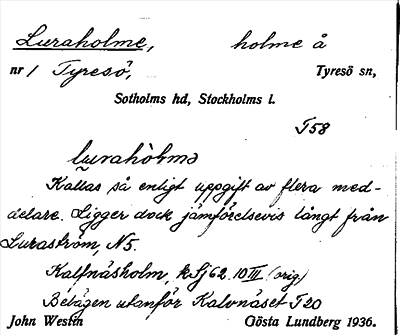 Luraholme, holme å
nr 1 Tyresö, Tyresö sn,
Sotholms hd, Stockholms l.
T58
luraholmə
Kallas så enligt uppgift av flera med-
delare. Ligger dock jämförelsevis långt från
Luraström, N5.
Kalfnäsholm, k Sj 62. 10 III (orig)
Belägen utanför Kalvnäset T20
John Westin Gösta Lundberg 1936.